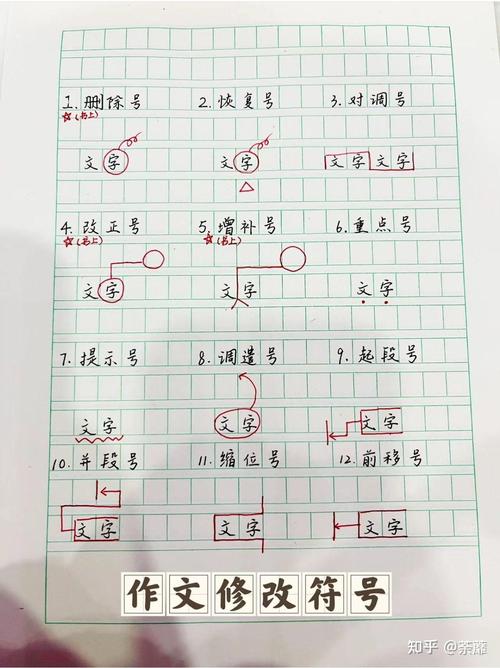 1. 删除号 2. 恢复号 3. 对调号
☆(书上)
文字 文字 文字文字
4. 改正号 5. 增补号 6. 重点号
☆(书上) ☆(书上)
文字 文字 文字
7. 提示号 8. 调遣号 9. 起段号
文字 文字 文字
10. 并段号 11. 缩位号 12. 前移号
文字 文字 文字
作文修改符号
知乎 @荼蘼